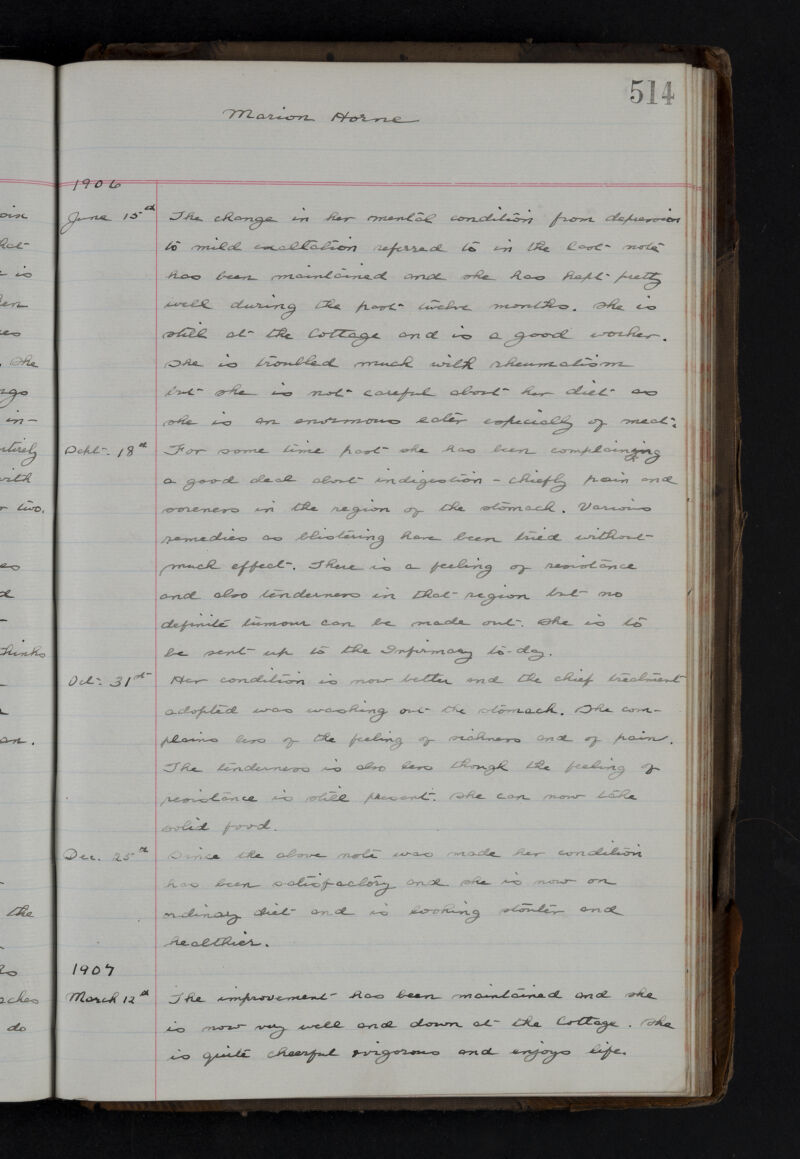 514
Marion Horne
1906
June 15th The change in her mental condition from depression
to mild exaltation referred to in the last note
has been maintained and she has kept pretty
well during the past twelve months. She is
still at the Cottage and is a good worker.
She is troubled much with rheumatism
but she is not careful about her diet as
she is an enormous eater especially of meat.
Sept. 18th For some time past she has been complaining
a good deal about indigestion - chiefly pain and
soreness in the region of the stomach. Various
remedies as blistering have been tried without
much effect. There is a feeling of resistance
and also tenderness in that region but no
definite tumour can be made out. She is to
be sent up to the Infirmary to-day.
Oct. 31st Her condition is now better and the chief treatment
adopted was washing out the stomach. She com-
plains less of the feeling of sickness and of pain.
The tenderness is also less though the feeling of
resistance is still present. She can now take
solid food.
Dec. 25th Since the above note was made her condition
has been satisfactory and she is now on
ordinary diet and is looking stouter and
healthier.
1907
March 12th The improvement has been maintained and she
is now very well and down at the Cottage. She
is quite cheerful & vigorous and enjoys life.